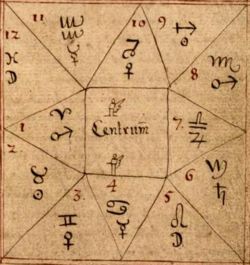 11
10
9
12
♀
8
♂
1
♈
♂
Centrum
7.
♎
♃
2
♉
☉
6
♄
3.
♊
♀
4
♋
☿
5
♌
D